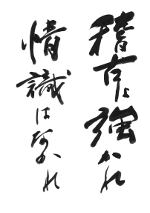 稽古は強かれ
情識はなかれ